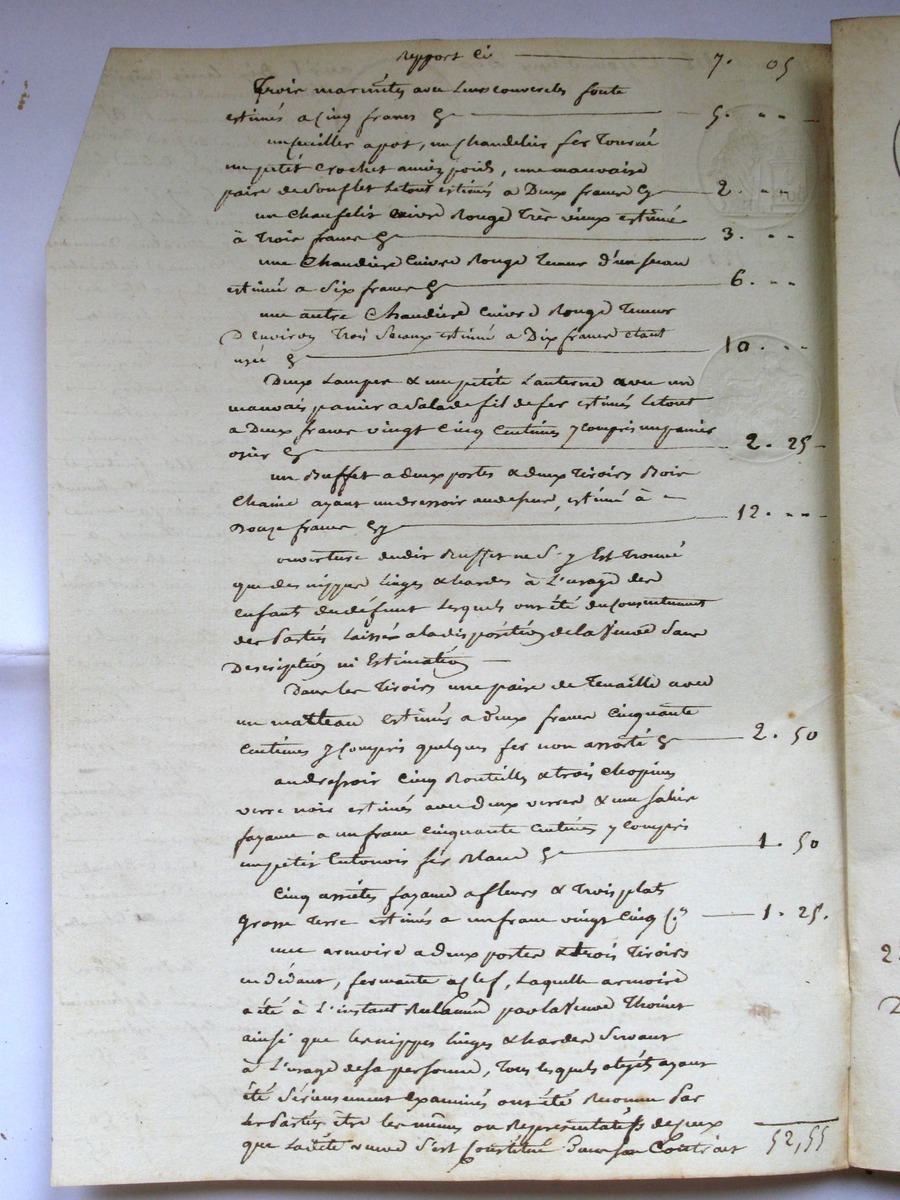 rapport Ci 7. 05
Trois marmites avec leurs couvercles fonte
estimés a cinq francs Cy 5. --
un cuiller a pot, un chandelier fer Tourné
un petit Crochet poids, une mauvaise
paire de soufflet Le tout estimés a Deux francs Cy 2. --
un Chaufelit cuivre Rouge Très vieux estimé
à Trois francs Cy 3. --
une Chaudiere Cuivre Rouge Teneur d'un seau
estimée a Six francs Cy 6. --
une autre Chaudiere Cuivre Rouge Teneur
D'environ Trois Seaux estimé a Dix francs étant
usée Cy 10. --
Deux Lampes & une petite Lanterne avec un
mauvais panier a Salade fil de fer estimés Le tout
a Deux francs vingt Cinq Centimes y Compris un panier
osier Cy 2. 25
un Buffet a deux portes & deux Tiroirs Bois
Chaine ayant un dressoir au dessus, estimé à
Douze francs Cy 12. --
ouverture dudit Buffet ne S'y Est Trouvé
que des nippes linges & hardes à L'usage des
enfants du défunt Lesquels ont été du Consentement
des Parties Laissés a la disposition de la Veuve Sans
Description ni Estimation
Dans les Tiroirs une paire de Tenaille avec
un matteau estimés a deux francs Cinquante
Centimes y Compris quelques fer non assorti Cy 2. 50
au dressoir Cinq Bouteilles & trois Chopines
verre noir estimés avec deux verres & une Salier
fayance a un franc Cinquante Centimes y Compris
un petit Entonnois fer Blanc Cy 1. 50
Cinq assiétes fayance a fleurs & Trois plats
Grosse Terre estimés a un franc vingt Cinq C. 1. 25.
une armoire a deux portes & trois Tiroirs
en dédans, fermante a Clef, Laquelle armoire
a été à L'instant Reclamée par la Veuve Thoinet
ainsi que les nippes linges & hardes Servant
à L'usage de sa personne, Tous Lesquels objets ayant
été Sérieusement Examinés ont été Reconnu Par
Les Parties être les mêmes ou Représentatifs de ceux
que Ladite veuve S'est Constitué Dans son Contrat 52,55